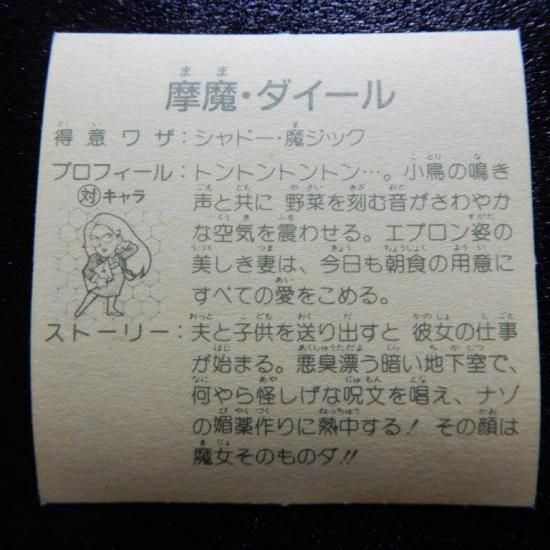 摩魔・ダイール
得意ワザ：シャドー・魔ジック
プロフィール：トントントントン…。小鳥の鳴き
声と共に 野菜を刻む音がさわやか
な空気を震わせる。エプロン姿の
美しき妻は、今日も朝食の用意に
すべての愛をこめる。
対キャラ
ストーリー：夫と子供を送り出すと 彼女の仕事
が始まる。悪臭漂う暗い地下室で、
何やら怪しげな呪文を唱え、ナゾ
の媚薬作りに熱中する！その顔は
魔女そのものダ!!